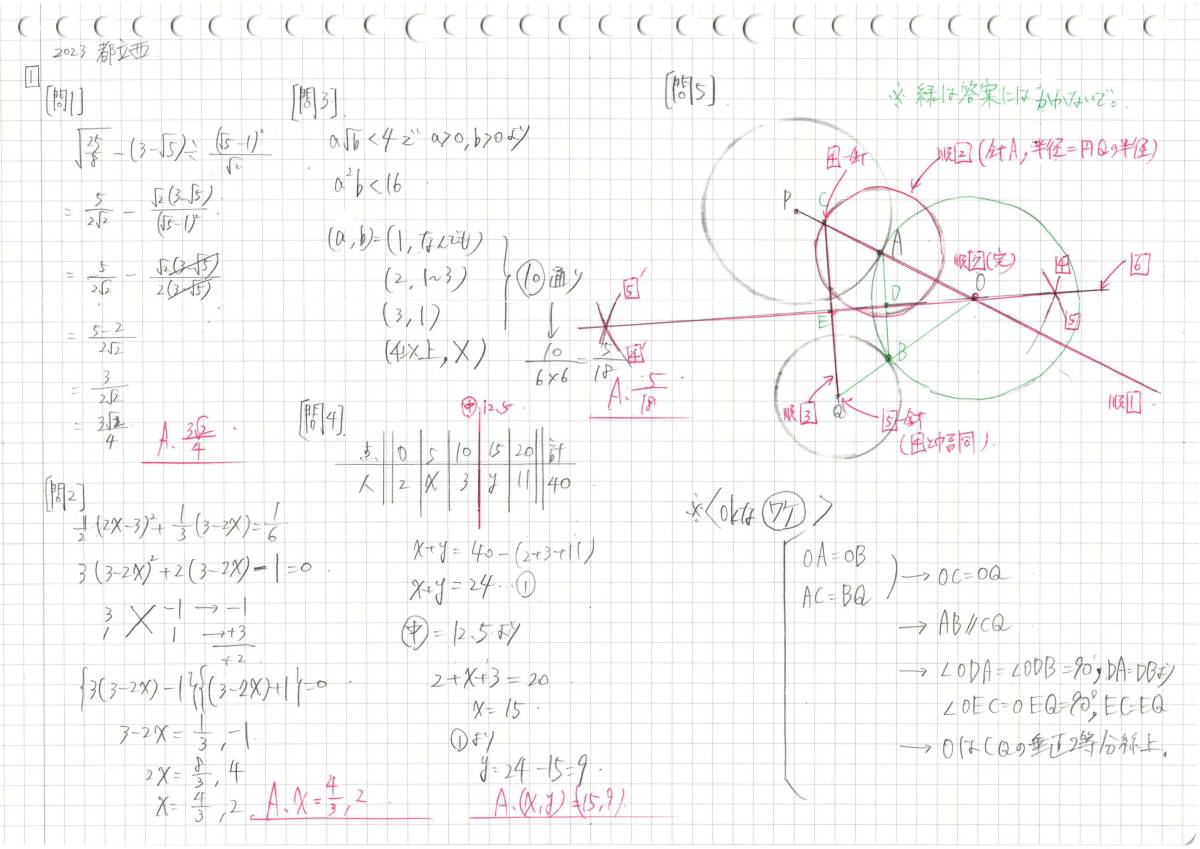 2023 都立西
1
[問1]
√(25/8) - (3-√5) ÷ (√5-1)²/√2
= 5/2√2 - √2(3-√5)/(√5-1)²
= 5/2√2 - √2(3-√5)/2(3-√5)
= 5-2/2√2
= 3/2√2
= 3√2/4
A. 3√2/4
[問2]
1/2(2x-3)² + 1/3(3-2x) = 1/6
3(3-2x)² + 2(3-2x) - 1 = 0
3 -1 → -1
1 1 → +3
+2
{3(3-2x)-1}{(3-2x)+1}=0
3-2x = 1/3, -1
2x = 8/3, 4
x = 4/3, 2
A. x = 4/3, 2
[問3]
a√b < 4で a>0, b>0より
a²b < 16
(a,b) = (1, なんでも)
(2, 1~3)
(3, 1)
(4以上, ×)
10通り
10/6×6 = 5/18
A. 5/18
[問4]
中 12.5
点 0 5 10 15 20 計
人 2 x 3 y 11 40
x+y = 40-(2+3+11)
x+y = 24 … ①
中 = 12.5より
2+x+3 = 20
x = 15
①より
y = 24-15 = 9
A. (x,y) = (15,9)
[問5]
※ 緑は答案にはかかないで。
4-針
順2 (針A, 半径=円Qの半径)
P
C
A
順2(完)
O
4
6
5
5'
D
E
B
4'
順3
Q
順1
5-針
(4と幅同)
※<OKなワケ>
OA=OB
AC=BQ
→ OC=OQ
→ AB∥CQ
→ ∠ODA=∠ODB=90°, DA=DBより
∠OEC=OEQ=90°, EC=EQ
→ OはCQの垂直2等分線上。